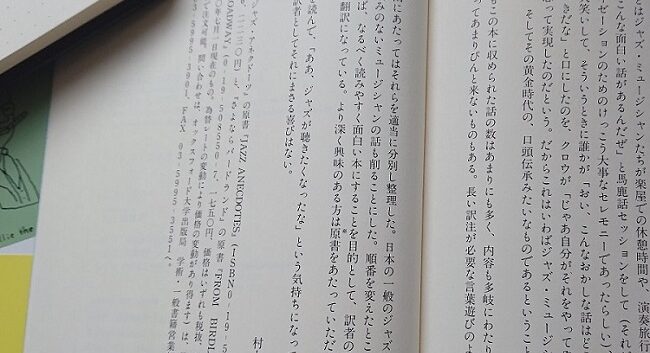 とはジャズ・ミュージシャンたちが楽屋での休憩時間や、演奏旅行
こんな面白い話があるんだぜ」と馬鹿話セッションをして（それ
ゼーションのためのけっこう大事なセレモニーであったらしい）
笑いして、そういうときに誰かが「おい、こんなおかしな話はど
きだな」と口にしたのを、クロウが「じゃあ自分がそれをやって
思って実現したのだという。だからこれはいわばジャズ・ミュージ
そしてその黄金時代の、口頭伝承みたいなものであるということ
もこの本に収められた話の数はあまりにも多く、内容も多岐にわたり
ってあまりぴんと来ないものもある。長い訳注が必要な言葉遊びのよ
にあたってはそれらを適当に分別し整理した。日本の一般のジャズ
みのないミュージシャンの話も削ることにした。順番を変えたとこ
ば、なるべく読みやすく面白い本にすることを目的として、訳者の
翻訳になっている。より深く興味のある方は原書*をあたっていただ
読んで、「ああ、ジャズが聴きたくなったな」という気持ちになって
訳者としてそれにまさる喜びはない。
村
ジャズ・アネクドーツ』の原書『JAZZ ANECDOTES』(ISBN0-19-5
一二三〇円）と、『さよならバードランド』の原書『FROM BIRDL
OADWAY』(0-19-508550-7、一七五〇円。価格はいずれも税抜、
年七月一日現在のもの。為替レートの変動により価格の変動があり得ます）は、
で注文可能。問い合わせは、オックスフォード大学出版局 学術・一般書籍営業
3-5995-3901、FAX 03-5995-3551へ。